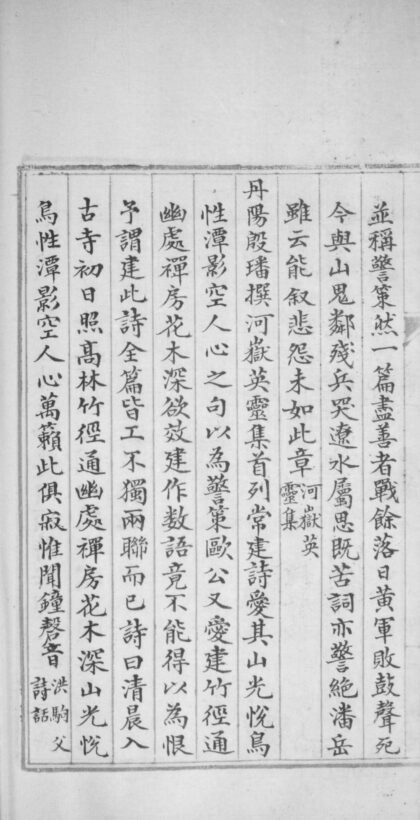 並稱警策然一篇盡善者戰餘落日黃軍敗鼓聲死
今與山鬼鄰殘兵哭遼水屬思既苦詞亦警絕潘岳
雖云能叙悲怨未如此章河嶽英靈集
丹陽殷璠撰河嶽英靈集首列常建詩愛其山光悅鳥
性潭影空人心之句以為警策歐公又愛建竹徑通
幽處禪房花木深欲效建作数語竟不能得以為恨
予謂建此詩全篇皆工不獨兩聯而已詩曰清晨入
古寺初日照高林竹徑通幽處禪房花木深山光悅
鳥性潭影空人心萬籟此俱寂惟聞鐘磬音洪駒父詩話